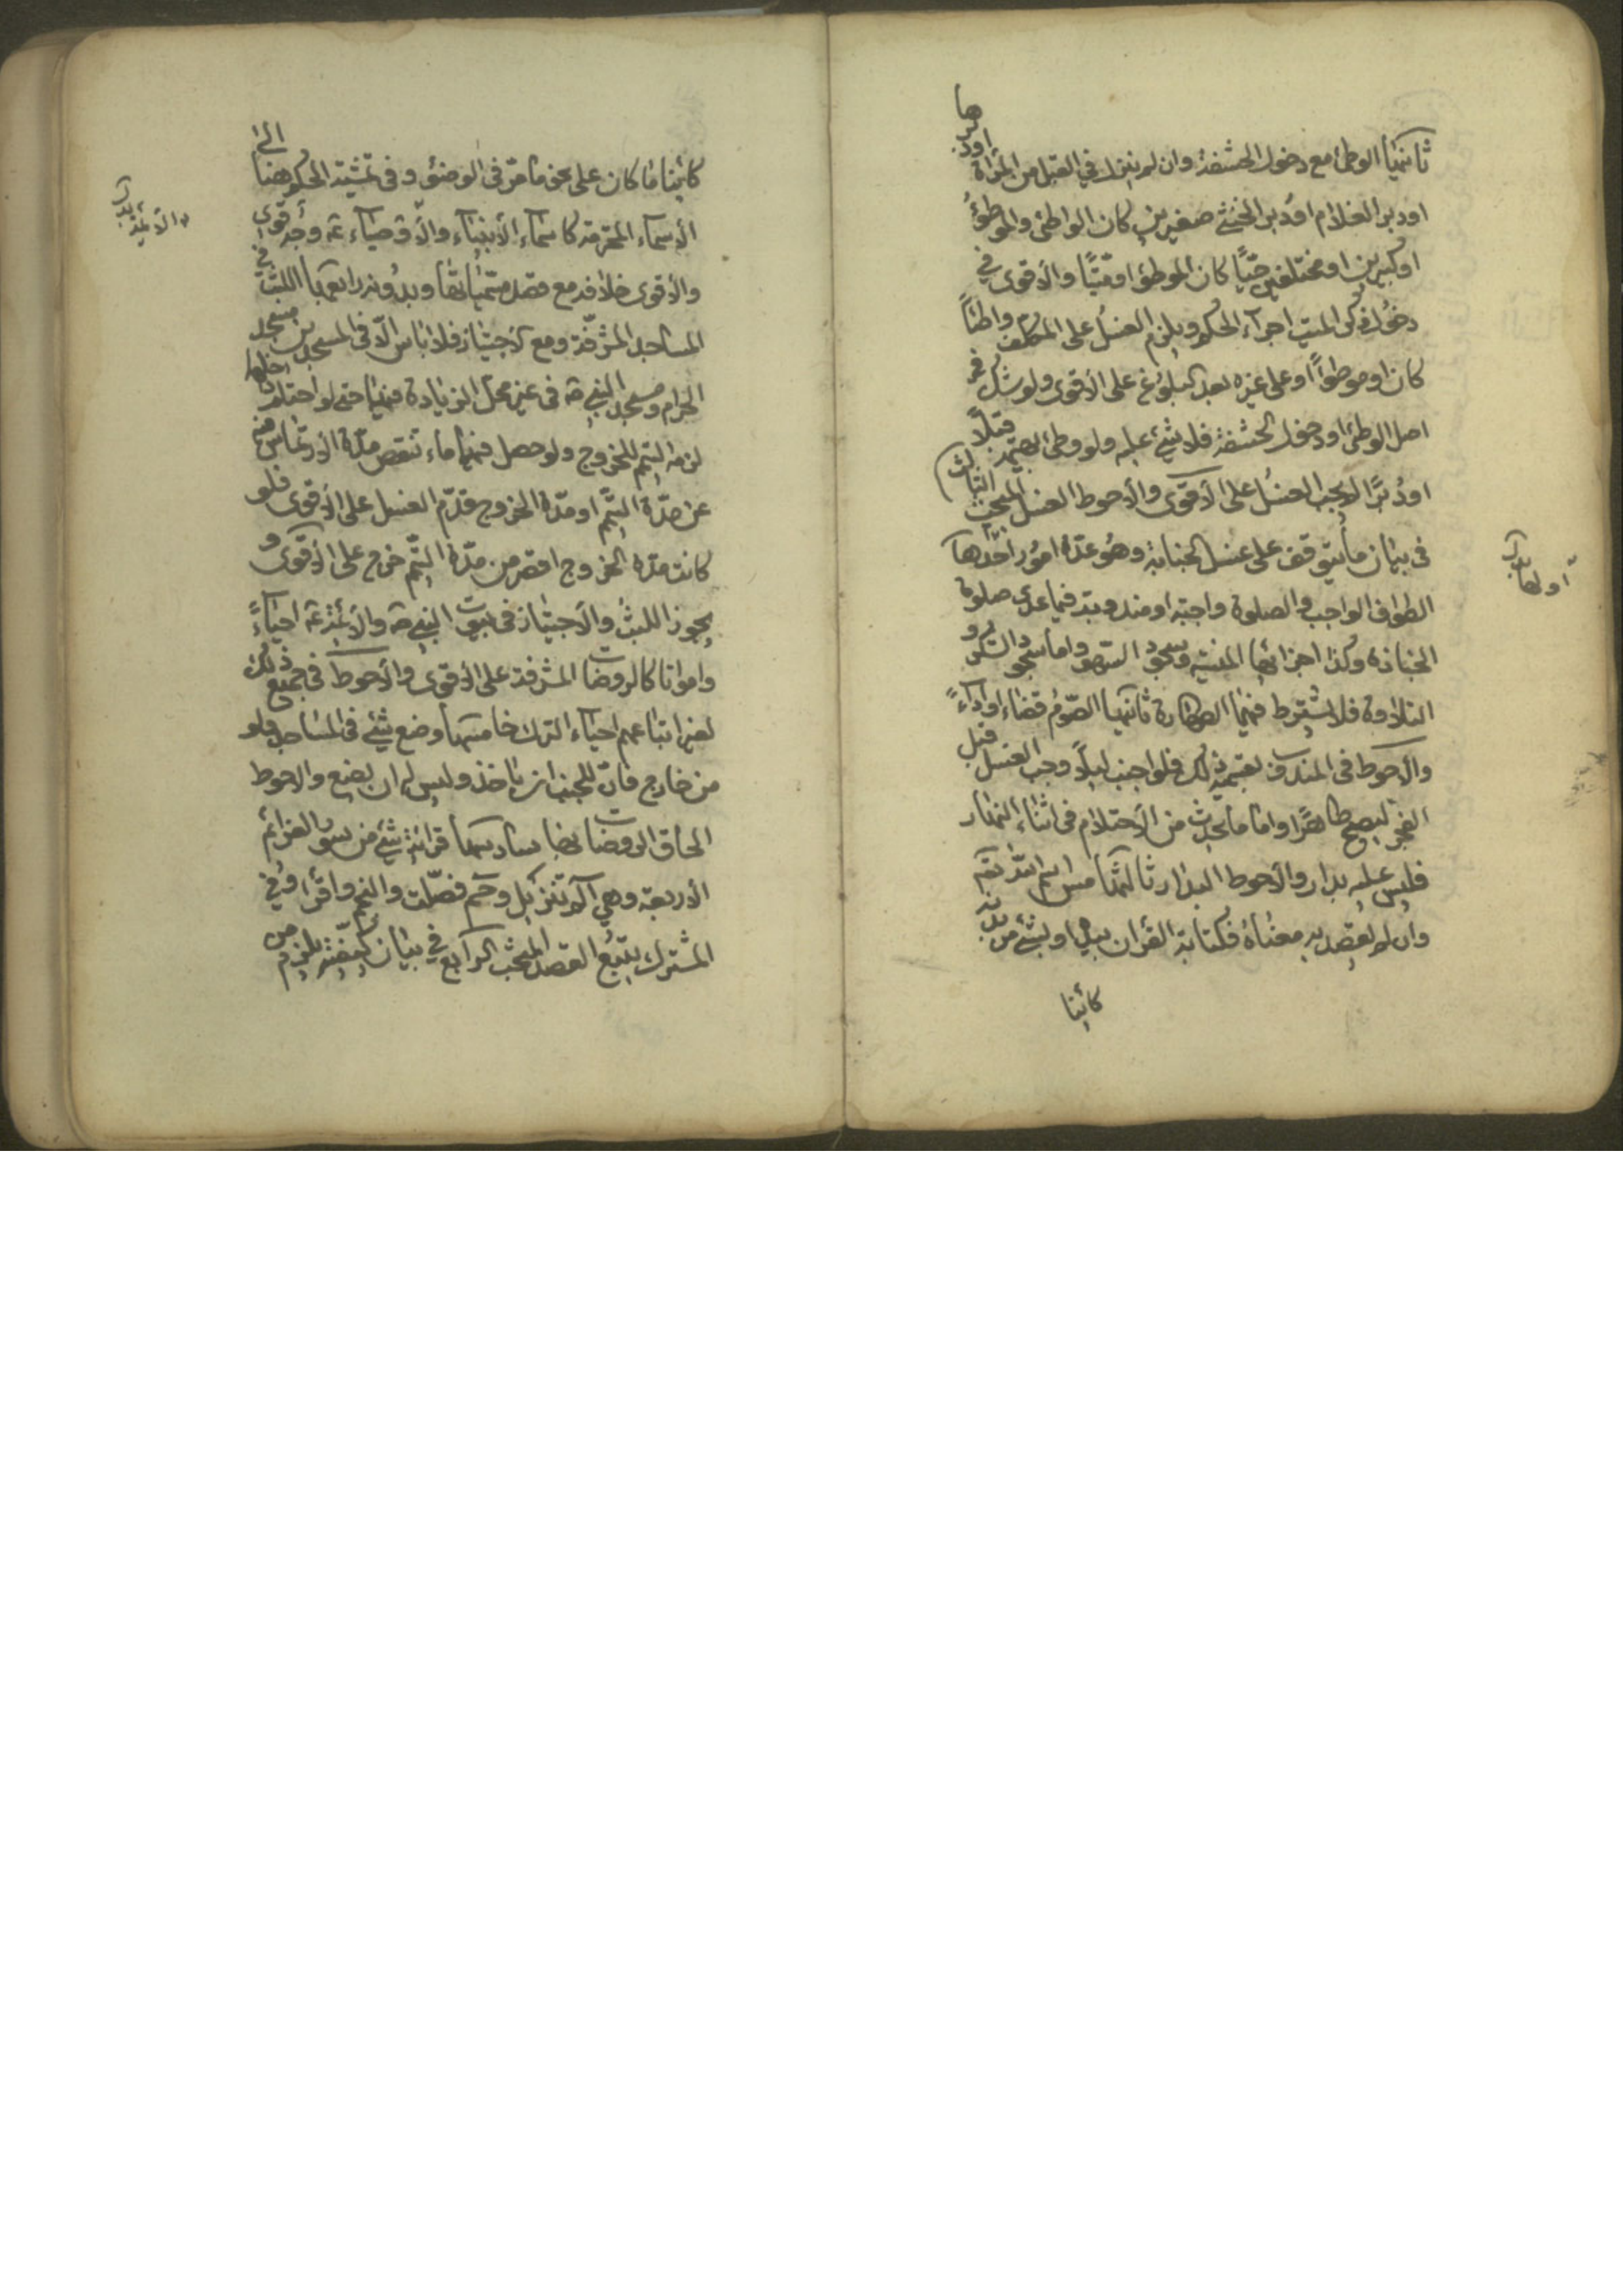 ثانيها الوطئ مع دخول الحشفة وان لم ينزل في القبل من المراة اودبرها
اودبر الغلام اودبر الخنثى صغيرين كان الواطئ والموطؤ
اوكبيرين او مختلفين حيّا كان الموطؤ او ميّتا والأقوى في
دخول ذكر الميت اجرآء الحكم ويلزم الغسل على المكلف واطئاً
كان او موطوءاً او على غيره بعد البلوغ على الأقوى ولو شك في
اصل الوطئ او دخول الحشفة فلا شيء عليه ولو وطئ قبلاً
او دُبرًا لا يجب الغسل على الأقوى والأحوط الغسل المبحث الثالث
في بيان ما يتوقف على غسل الجنابة وهو عدّة امور احدها
الطواف الواجب والصلوة واجبة او مندوبة فيما عدى صلوة
الجنازة وكذا اجزائها المنسيه وسجود السهو واما سجود الشكر و
التلاوة فلا يشترط فيهما الطهارة ثانيها الصّوم قضاء او اداءً
والأحوط في المندوب تعميم ذلك فلو اجنب ليلاً وجب الغسل قبل
الفجر ليصبح طاهرًا واما ما يحدث من الأحتلام في اثناء النهار
فليس عليه بدار والأحوط البدار ثالثها مس اسم الله تعم
وان لم يقصد به معناه فكتابة القرآن بيده او بشيء من بدنه
كائنا
اولها بدل
كائنا ما كان على نحو ما مرّ في الوضوء وفي تمشية الحكم هنا الى
الأسماء المحترمة كاسماء الأنبياء والأوصياء ع وجه قوي
والأقوى خلافه مع قصد مسمياتها وبدونه رابعها اللبث في
المساجد المشرّفة ومع الأجتياز فلا باس الّا في المسجدين مسجد
الحرام ومسجد النبي ص في غير محل الزيادة فيهما حتى لو احتلم داخلهما
لزمه التيمم للخروج ولو حصل فيهما ماء تنقص مدّة الأرتماس فيه
عن مدّة التيمّم او مدّة الخروج قدّم الغسل على الأقوى فلو
كانت مدّة الخروج اقصر من مدّة التيمّم خرج على الأقوى و
يجوز اللبث والأجتياز في بيوت النبي ص والأئمة ع احياءً
وامواتا كالروضات المشرفة على الأقوى والأحوط في جميع ذلك
لغير اتباعهم احياء الترك خامسها وضع شيء في المساجد ولو
من خارج فانّ للجنب ان ياخذ وليس له ان يضع والاحوط
الحاق الروضات بها سادسها قرائة شيء من سور العزائم
الأربعة وهي آلم تنزيل وحم فصّلت والنجم واقرأ وفي
المشترك يتّبع القصد المبحث الرابع في بيان كيفيّته يلزم من
والأئمة بدل